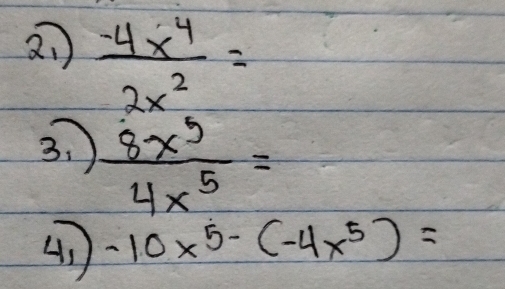 2.) -4x⁴ =
2x²
3.) 8x⁵ =
4x⁵
4.) -10x⁵ - (-4x⁵) =